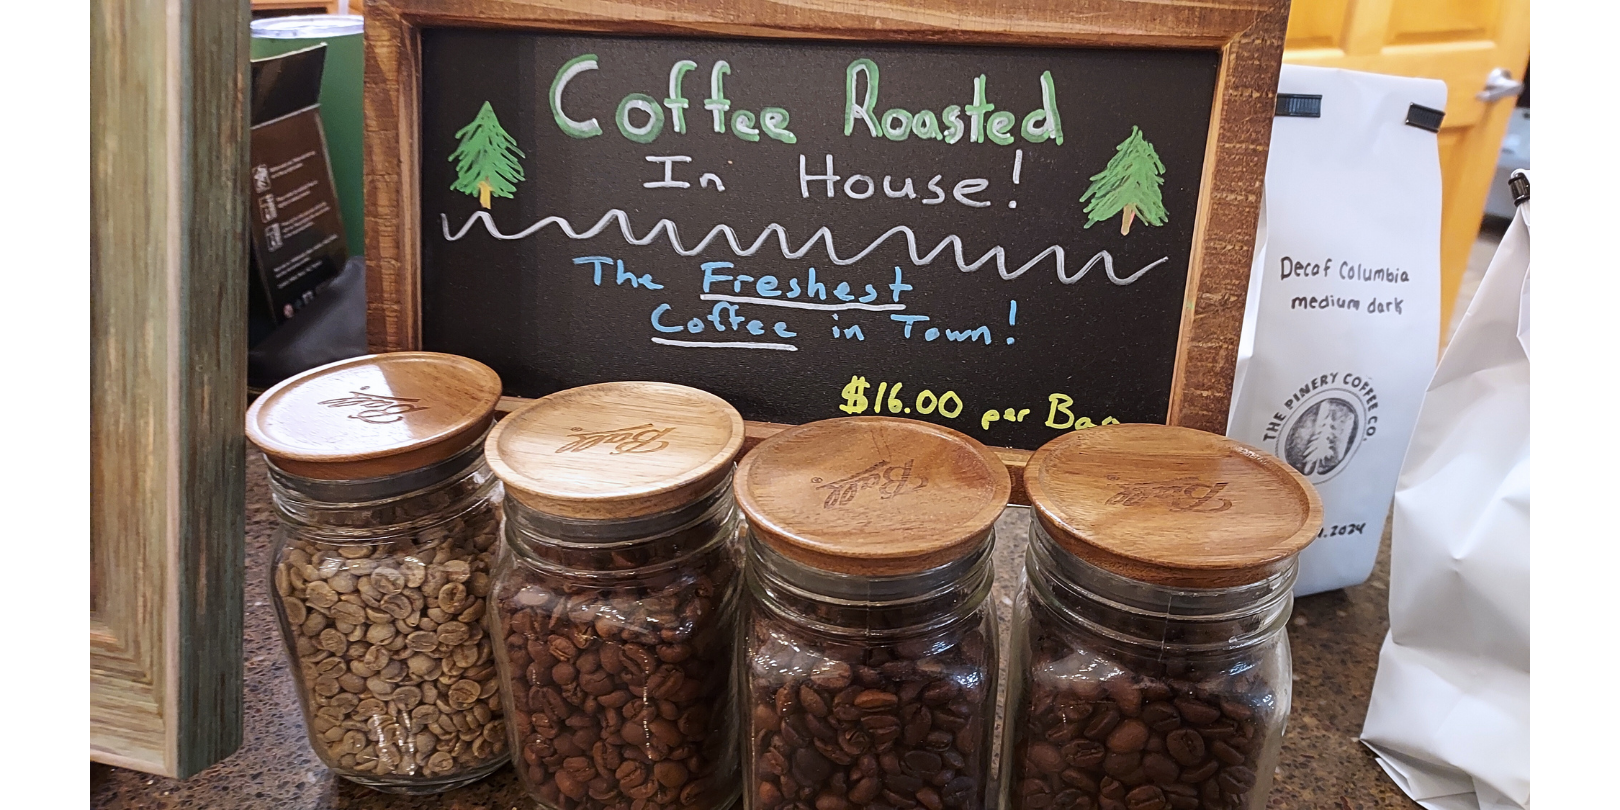 Coffee Roasted
In House!
The Freshest
Coffee in Town!
$16.00 per Bag
Decaf Columbia
medium dark
THE PINERY COFFEE CO.
Ball
Ball
Ball
Ball